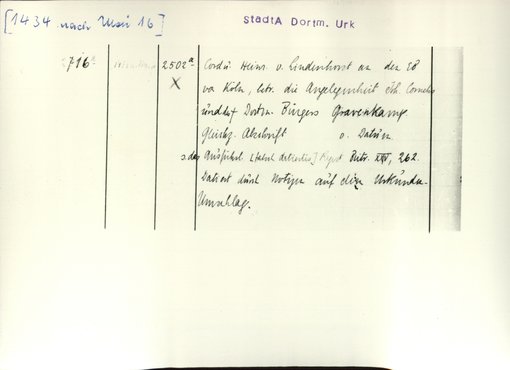 [1434 nach Mai 16]
StadtA Dortm. Urk
716a 2502a Cord u. Heinr. v. Lindenhorst an den EB
X von Köln, betr. die Angelegenheit
Dortm. Bürgers Gravenkamp.
Gleichz. Abschrift o. Datum
s. das Ausführl. [falsch datierte] Regest XXV, 262.
Datiert durch Notizen auf dem Urkunden-
Umschlag.